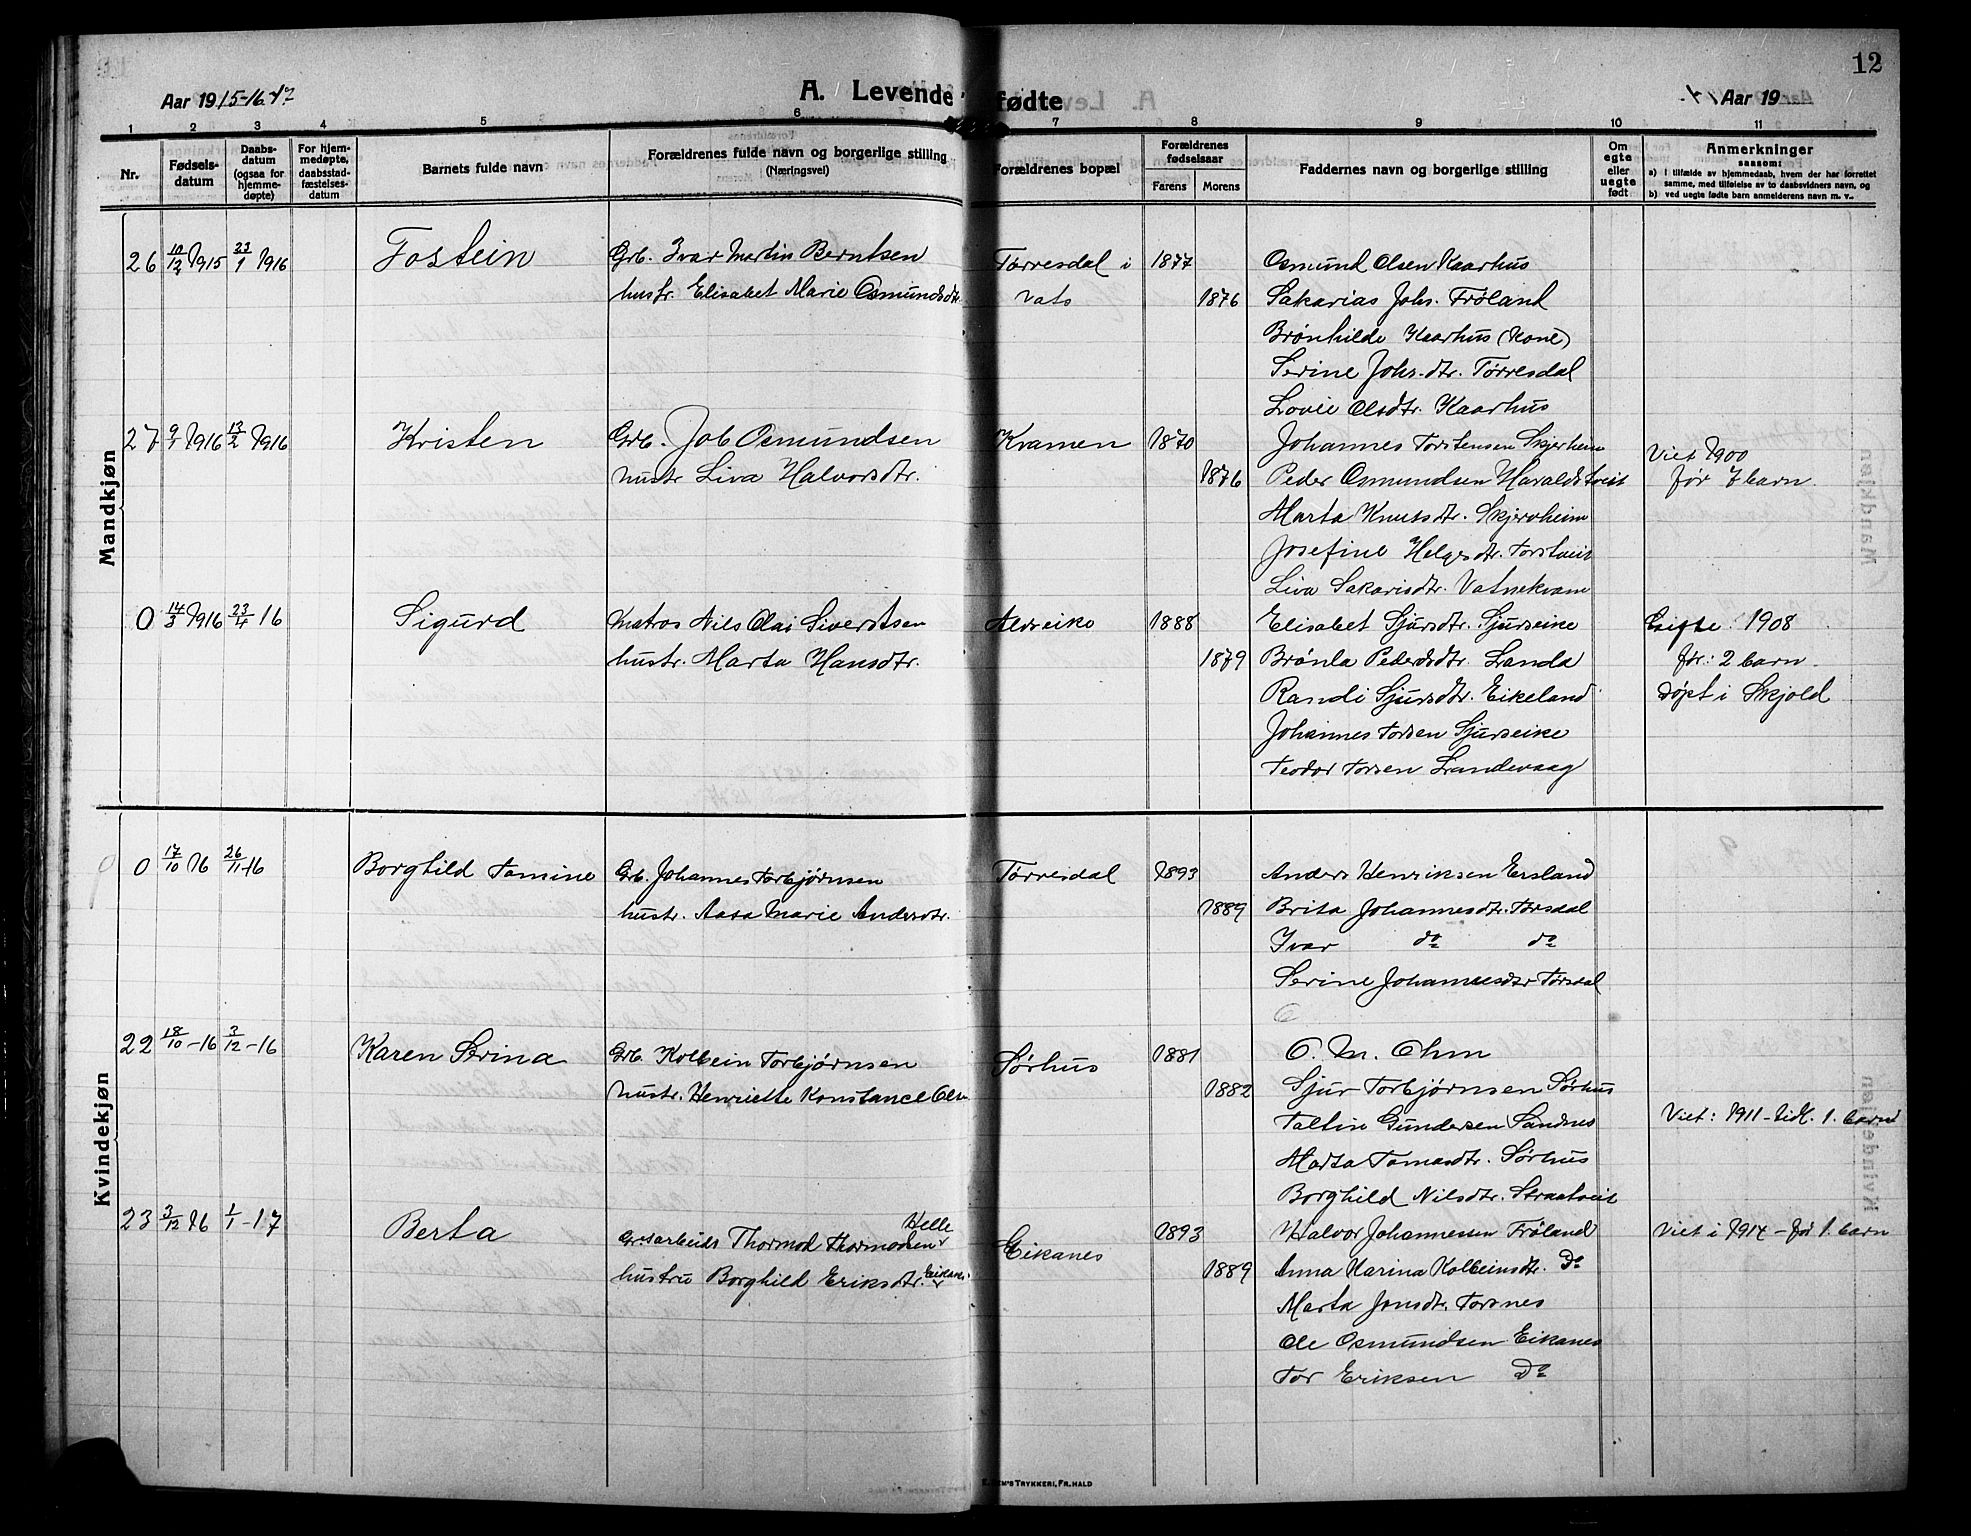 12
Aar 1915-16-17
A. Levende fødte
Aar 19
1 2 3 4 5 6 7 8 9 10 11
Nr.
Fødsels-
datum
Daabs-
datum
(ogsaa for
hjemme-
døpte)
For hjem-
medøpte,
daabsstad-
fæstelses-
datum
Barnets fulde navn
Forældrenes fulde navn og borgerlige stilling
(Næringsvei)
Forældrenes bopæl
Forældrenes
fødselsaar
Farens Morens
Faddernes navn og borgerlige stilling
Om
egte
eller
uegte
født
Anmerkninger
saasom:
a) i tilfælde av hjemmedaab, hvem der har forrettet
samme, med tilføielse av to daabsvidners navn, og
b) ved uegte fødte barn anmelderens navn m. v.
Mandkjøn
26 10/12 1915 23/1 1916 Tostein Grb. Ivar Martin Berntsen Tørresdal i 1877 Osmund Olsen Kaarhus
hustr. Elisabet Marie Osmundsdtr. Vats 1876 Sakarias Johs. Frøland
Brønhilde Kaarhus (Kone)
Serine Johs.dtr. Tørresdal
Lovie Olsdtr. Kaarhus
27 9/1 1916 13/2 1916 Kristen Grb. Job Osmundsen Kvamen 1870 Johannes Torstensen Skjerheim
hustr Liva Halvorsdtr. 1876 Peder Osmundsen Haraldstveit Viet 1900
før 7 barn.
Marta Knutsdtr. Skjerheim
Josefine Helgesdtr. Torstveit
Liva Sakarisdtr. Vatnekvam
0 14/3 1916 23/4 16 Sigurd Matros Nils Olai Sivertsen Alvseike 1888 Elisabet Sjursdtr. Sjurseike Gifte: 1908
hustr. Marta Hansdtr. 1879 Brønla Pedersdtr. Landa før: 2 barn.
Randi Sjursdtr. Eikeland Døpt i Skjold
Johannes Torsen Sjurseike
Teodor Torsen Landevaag
Kvindekjøn
0 17/10 16 26/11-16 Borghild Tomine Grb. Johannes Torbjørnsen Tørresdal 1893 Anders Henriksen Ersland
hustr. Aasa Marie Andersdtr. 1889 Brita Johannesdtr. Torsdal
Ivar do do
Serine Johannesdtr Torsdal
22 18/10-16 3/12-16 Karen Serina Grb. Kolbein Torbjørnsen Sørhus 1881 O. M. Ohm
hustr. Henriette Konstance Olsen 1882 Sjur Torbjørnsen Sørhus
Taltin Gundersen Sandnes Viet: 1911 - tidl. 1. barn
Marta Tomasdtr. Sørhus
Borghild Nilsdtr. Straatveit
23 3/12 16 1/1-17 Berta Grdsarbeids Thormod Thormodsen Helle Eikanes 1893 Halvor Johannessen Frøland Viet i 1914 - før 1. barn
hustru Borghild Eriksdtr. Eikanes 1889 Anna Karina Kolbeinsdtr. Do
Marta Jonsdtr. Torsnes
Ole Osmundsen Eikanes
Tor Eriksen Do
TRYKKERI, FR. HALD